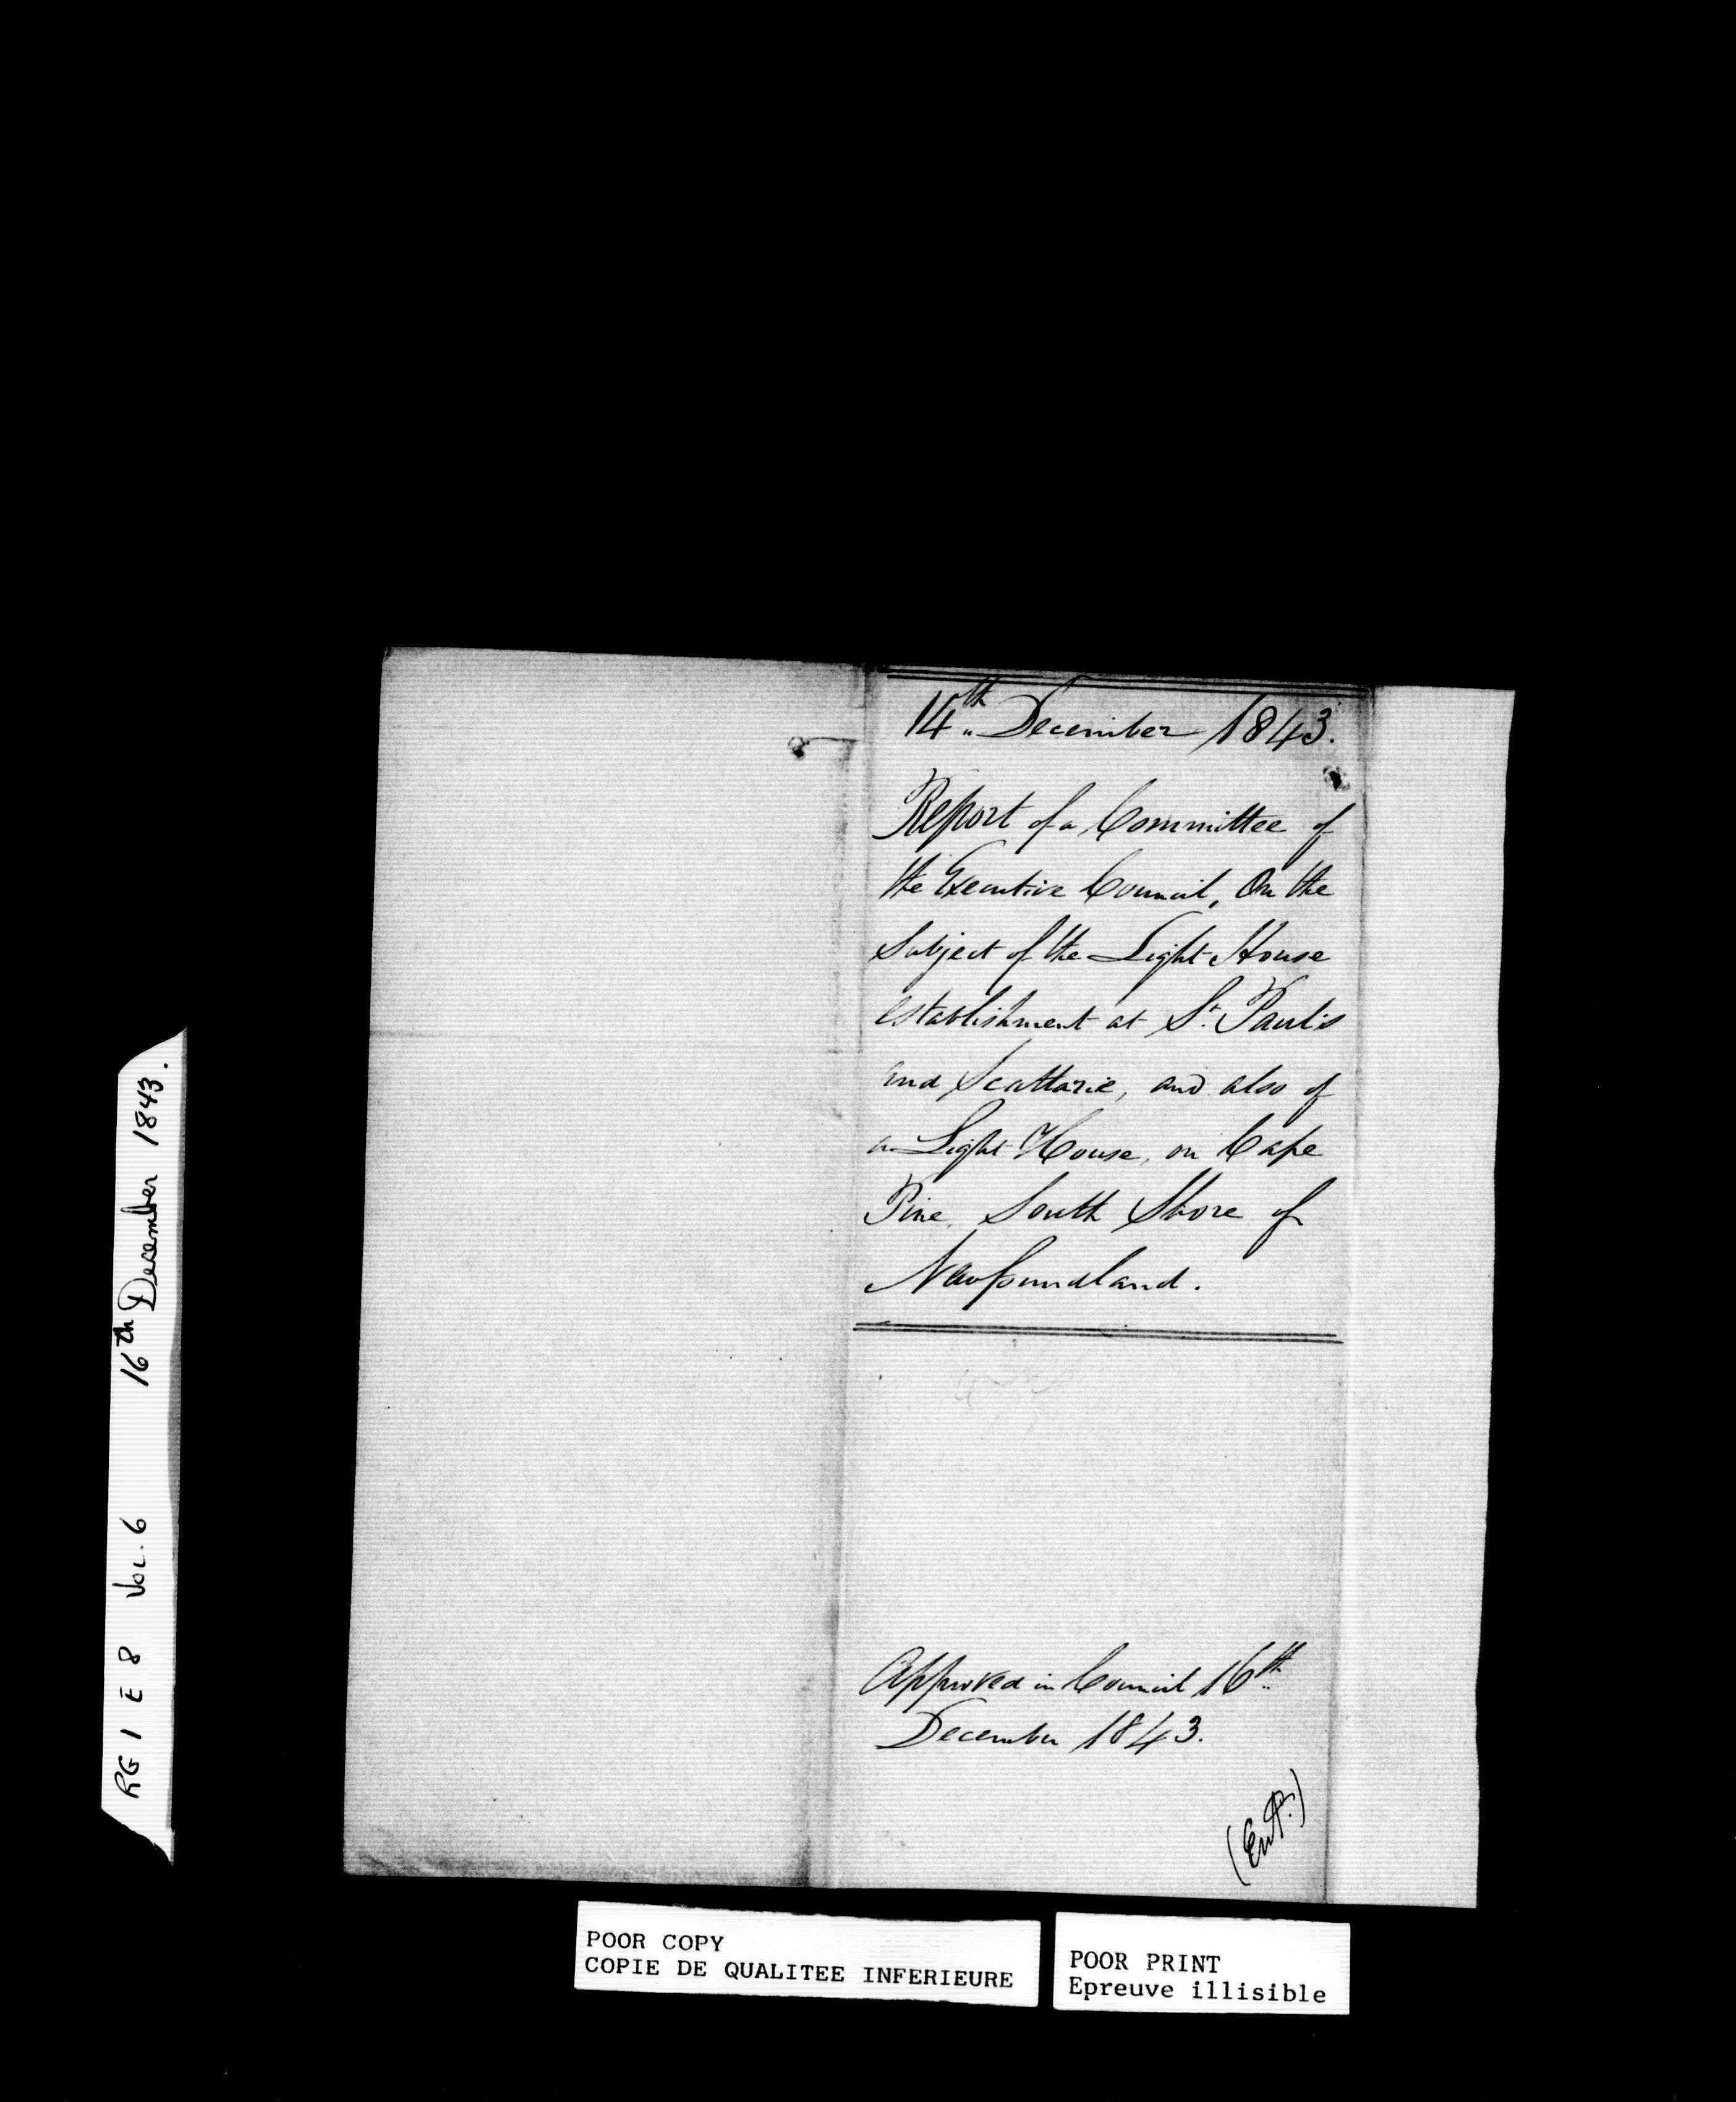 14th December 1843.
Report of a Committee of
the Executive Council, On the
Subject of the Light House
establishment at St. Paul's
and Scattarie, and also of
a Light House, on Cape
Pine, South Shore of
Newfoundland.
Approved in Council 16th
December 1843.
(Entd.)
RG 1 E 8 Vol. 6 16th December 1843.
POOR COPY
COPIE DE QUALITEE INFERIEURE
POOR PRINT
Epreuve illisible